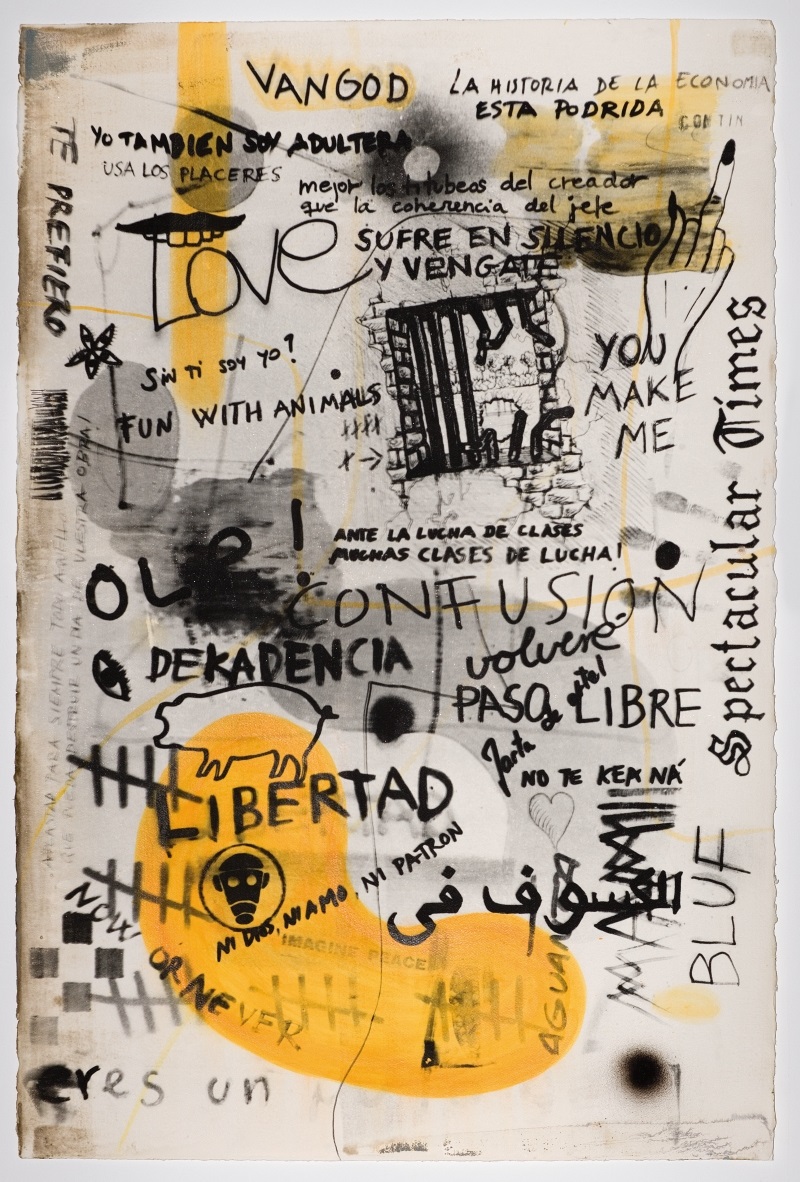 VANGOD
LA HISTORIA DE LA ECONOMIA
ESTA PODRIDA
CONTIN
YO TAMBIEN SOY ADULTERA
USA LOS PLACERES
TE PREFIERO
mejor los titubeos del creador
que la coherencia del jefe
LOVE
SUFRE EN SILENCIO
Y VENGATE
Sin ti soy yo?
FUN WITH ANIMALS
YOU
MAKE
ME
Spectacular Times
OLE!
ANTE LA LUCHA DE CLASES
MUCHAS CLASES DE LUCHA!
CONFUSION
volveré
DEKADENCIA
PASO LIBRE
NO TE KEA NÁ
LIBERTAD
NI DIOS, NI AMO, NI PATRON
الكسوف في
BLUF
NOW
OR NEVER
IMAGINE PEACE
AGUAN
eres un